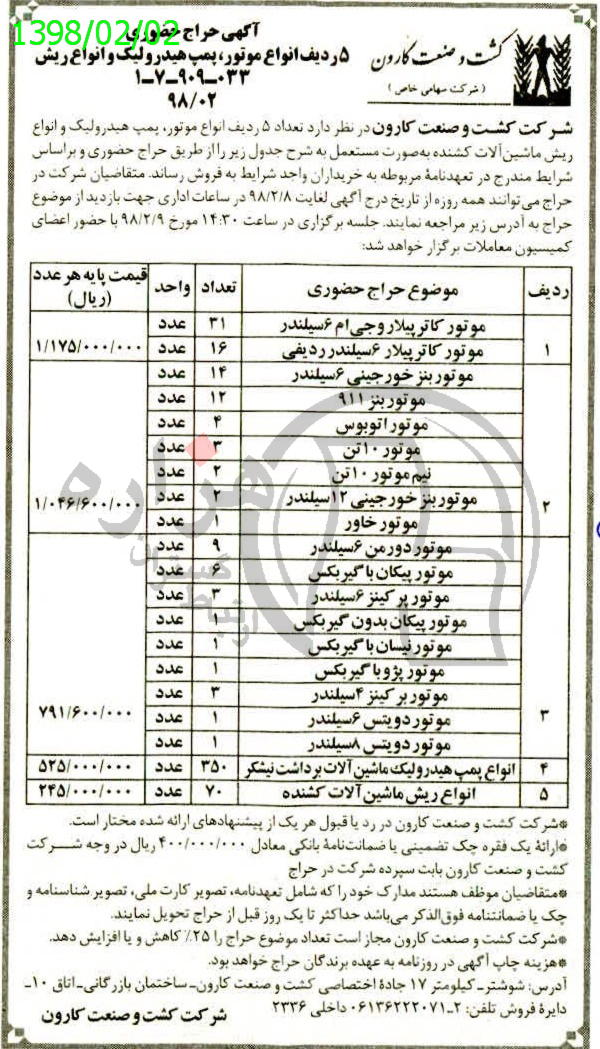 1398/02/02
آگهی حراج حضوری
۵ ردیف انواع موتور، پمپ هیدرولیک و انواع ریش
۱-۷-۹۰۹-۰۳۳
۹۸/۰۲
کشت و صنعت کارون
(شرکت سهامی خاص)
شرکت کشت و صنعت کارون در نظر دارد تعداد ۵ ردیف انواع موتور، پمپ هیدرولیک و انواع
ریش ماشین‌آلات کشنده به‌صورت مستعمل به شرح جدول زیر را از طریق حراج حضوری و براساس
شرایط مندرج در تعهدنامۀ مربوطه به خریداران واجد شرایط به فروش رساند. متقاضیان شرکت در
حراج می‌توانند همه روزه از تاریخ درج آگهی لغایت ۹۸/۲/۸ در ساعات اداری جهت بازدید از موضوع
حراج به آدرس زیر مراجعه نمایند. جلسه برگزاری در ساعت ۱۴:۳۰ مورخ ۹۸/۲/۹ با حضور اعضای
کمیسیون معاملات برگزار خواهد شد:
ردیف موضوع حراج حضوری تعداد واحد قیمت پایه هر عدد (ریال)
موتور کاترپیلار و جی‌ام ۶سیلندر ۳۱ عدد
۱ موتور کاترپیلار ۶سیلندر ردیفی ۱۶ عدد ۱/۱۷۵/۰۰۰/۰۰۰
موتور بنز خورجینی ۶سیلندر ۱۴ عدد
موتور بنز ۹۱۱ ۱۲ عدد
موتور اتوبوس ۴ عدد
موتور ۱۰تن ۳ عدد
نیم موتور ۱۰تن ۲ عدد
۲ موتور بنز خورجینی ۱۲سیلندر ۲ عدد ۱/۰۴۶/۶۰۰/۰۰۰
موتور خاور ۱ عدد
موتور دورمن ۶سیلندر ۹ عدد
موتور پیکان با گیربکس ۶ عدد
موتور پرکینز ۶سیلندر ۳ عدد
موتور پیکان بدون گیربکس ۱ عدد
موتور نیسان با گیربکس ۱ عدد
موتور پژو با گیربکس ۱ عدد
۳ موتور برکینز ۴سیلندر ۳ عدد ۷۹۱/۶۰۰/۰۰۰
موتور دویتس ۶سیلندر ۱ عدد
موتور دویتس ۸سیلندر ۱ عدد
۴ انواع پمپ هیدرولیک ماشین‌آلات برداشت نیشکر ۳۵۰ عدد ۵۲۵/۰۰۰/۰۰۰
۵ انواع ریش ماشین‌آلات کشنده ۷۰ عدد ۲۴۵/۰۰۰/۰۰۰
*شرکت کشت و صنعت کارون در رد یا قبول هر یک از پیشنهادهای ارائه شده مختار است.
*ارائۀ یک فقره چک تضمینی یا ضمانت‌نامۀ بانکی معادل ۴۰۰/۰۰۰/۰۰۰ ریال در وجه شرکت
کشت و صنعت کارون بابت سپرده شرکت در حراج
*متقاضیان موظف هستند مدارک خود را که شامل تعهدنامه، تصویر کارت ملی، تصویر شناسنامه و
چک یا ضمانتنامه فوق‌الذکر می‌باشد حداکثر تا یک روز قبل از حراج تحویل نمایند.
*شرکت کشت و صنعت کارون مجاز است تعداد موضوع حراج را ۲۵٪ کاهش و یا افزایش دهد.
*هزینه چاپ آگهی در روزنامه به عهده برندگان حراج خواهد بود.
آدرس: شوشتر-کیلومتر ۱۷ جادۀ اختصاصی کشت و صنعت کارون-ساختمان بازرگانی-اتاق ۱۰-
دایرۀ فروش تلفن: ۲-۰۶۱۳۶۲۲۲۰۷۱ داخلی ۲۳۳۶
شرکت کشت و صنعت کارون
هزاره